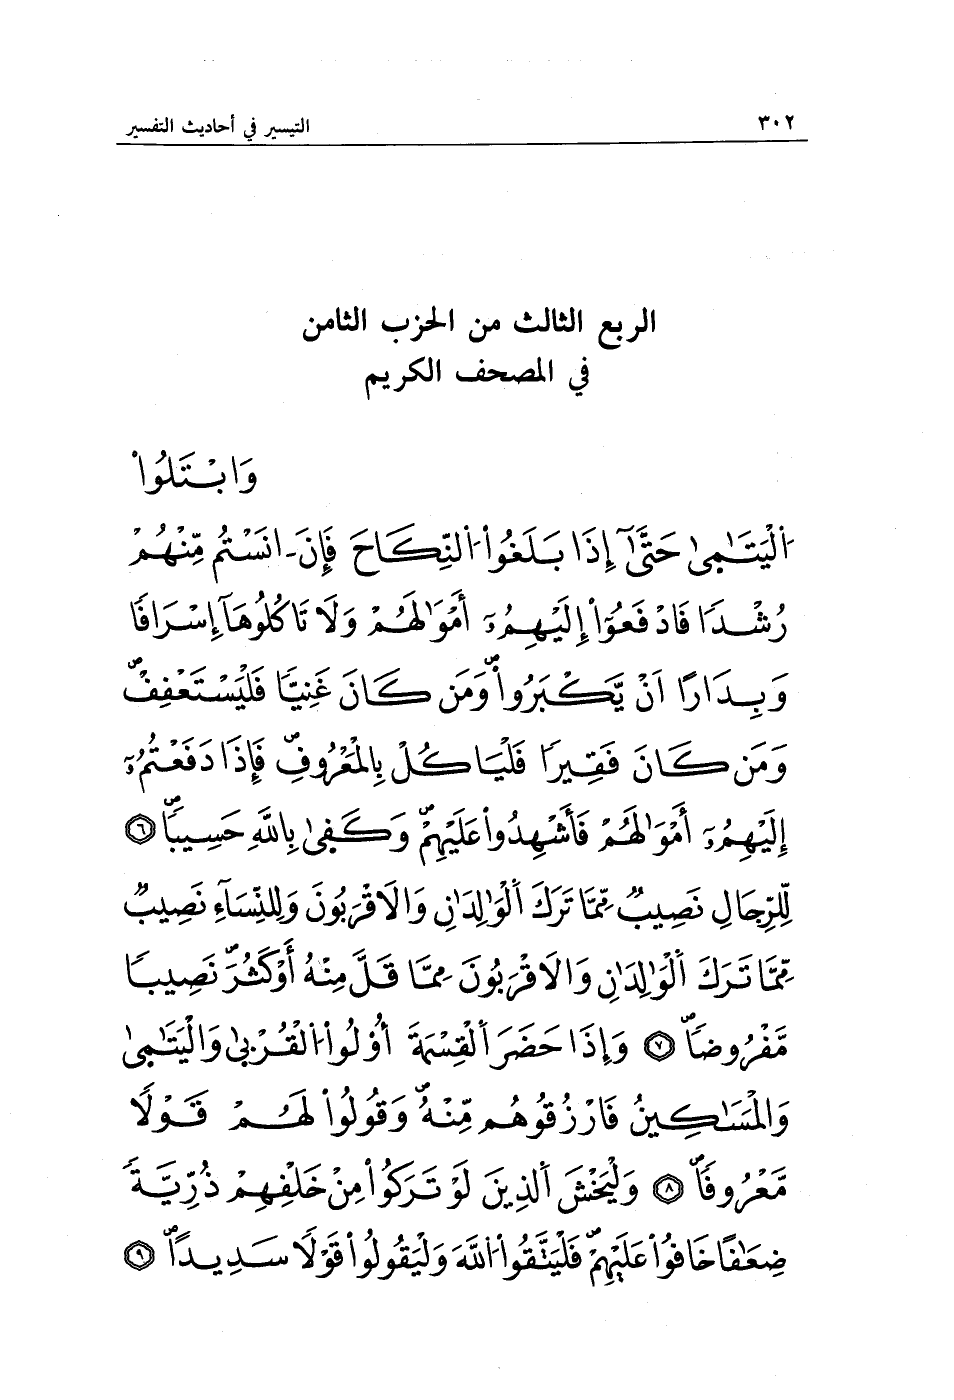 ٣٠٢ التيسير في أحاديث التفسير
الربع الثالث من الحزب الثامن
في المصحف الكريم
وَابْتَلُوا
اَلْيَتَٰمىٰ حَتَّىٰٓ إِذَا بَلَغُواْ اَلنِّكَاحَ فَإِنَ ـ انَسْتُم مِّنْهُمْ
رُشْداً فَادْفَعُوٓاْ إِلَيْهِمُۥٓ أَمْوَٰلَهُمْ وَلَا تَاكُلُوهَآ إِسْرَافاً
وَبِدَاراً اَنْ يَّكْبَرُواْ وَمَن كَانَ غَنِيّاً فَلْيَسْتَعْفِفْ
وَمَن كَانَ فَقِيراً فَلْيَاكُلْ بِالْمَعْرُوفِ فَإِذَا دَفَعْتُمُۥٓ
إِلَيْهِمُۥٓ أَمْوَٰلَهُمْ فَأَشْهِدُواْ عَلَيْهِمْ وَكَفىٰ بِاللَّهِ حَسِيباً ٦
لِّلرِّجَالِ نَصِيبٌ مِّمَّا تَرَكَ اَلْوَٰلِدَٰنِ وَالَاقْرَبُونَ وَلِلنِّسَآءِ نَصِيبٌ
مِّمَّا تَرَكَ اَلْوَٰلِدَٰنِ وَالَاقْرَبُونَ مِمَّا قَلَّ مِنْهُ أَوْ كَثُرَ نَصِيباً
مَّفْرُوضاً ٧ وَإِذَا حَضَرَ اَلْقِسْمَةَ أُوْلُواْ اَلْقُرْبىٰ وَالْيَتَٰمىٰ
وَالْمَسَٰكِينُ فَارْزُقُوهُم مِّنْهُ وَقُولُواْ لَهُمْ قَوْلاً
مَّعْرُوفاً ٨ وَلْيَخْشَ اَلذِينَ لَوْ تَرَكُواْ مِنْ خَلْفِهِمْ ذُرِّيَّةً
ضِعَٰفاً خَافُواْ عَلَيْهِمْ فَلْيَتَّقُواْ اَللَّهَ وَلْيَقُولُواْ قَوْلاً سَدِيداً ٩